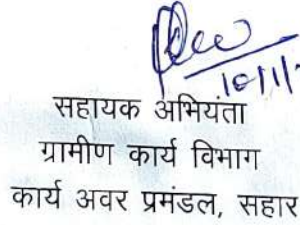 10/11/
सहायक अभियंता
ग्रामीण कार्य विभाग
कार्य अवर प्रमंडल, सहार